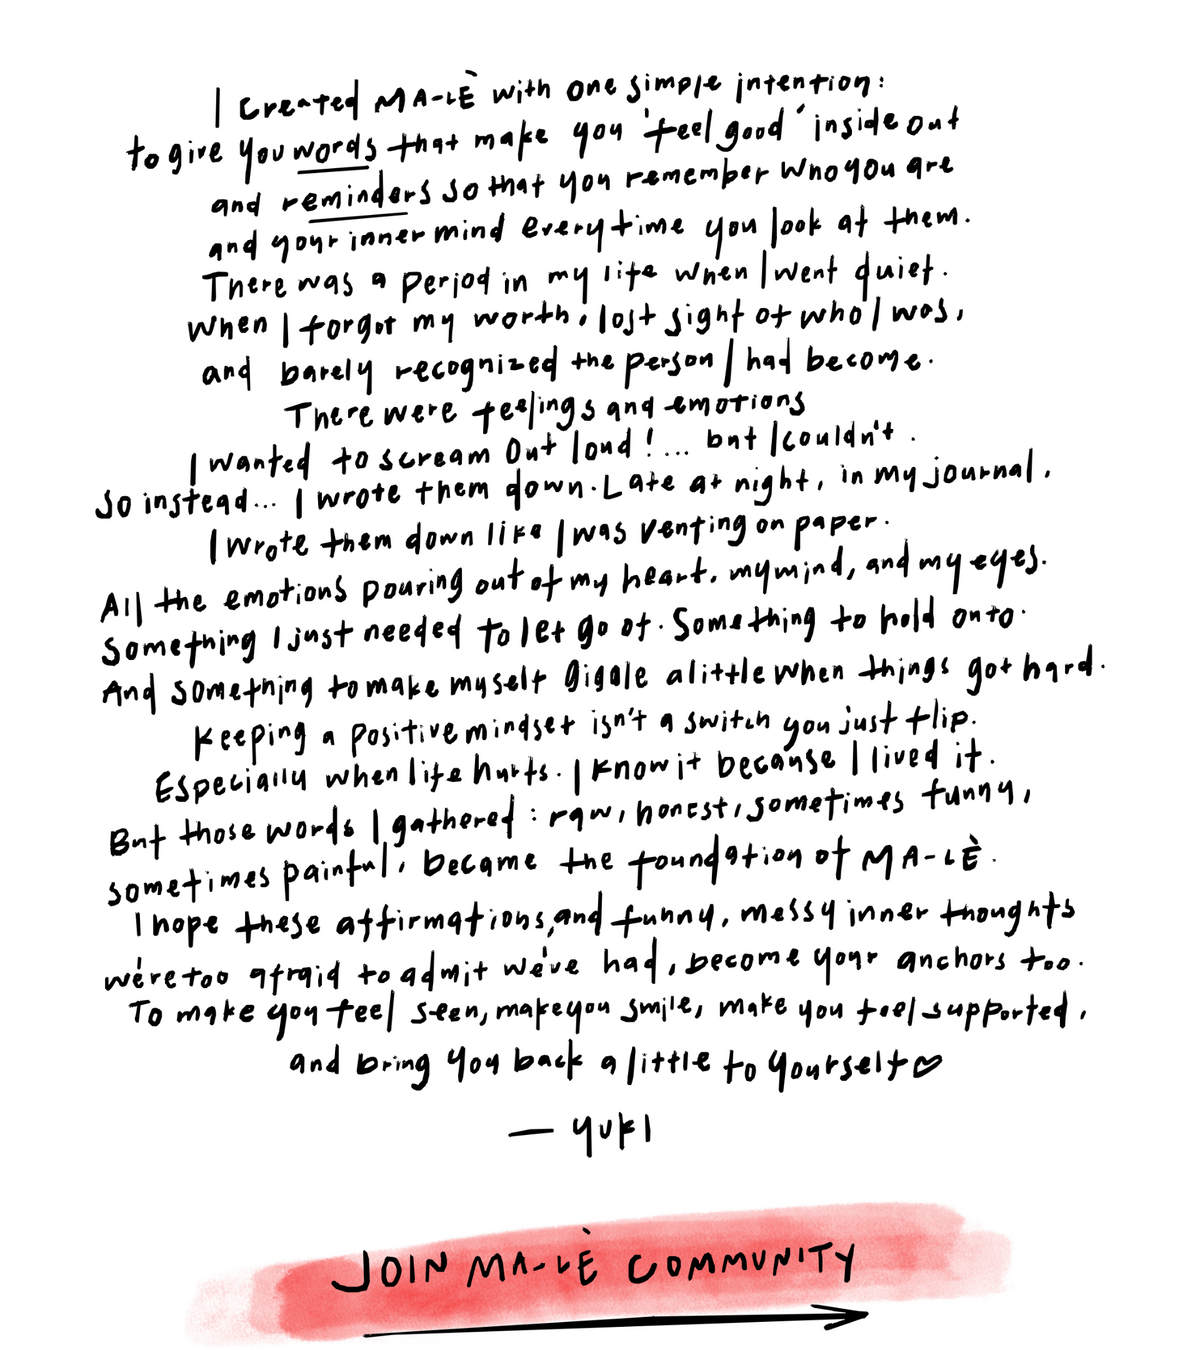 I created MA-LÈ with one simple intention:
to give you words that make you 'feel good' inside out
and reminders so that you remember who you are
and your inner mind every time you look at them.
There was a period in my life when I went quiet.
When I forgot my worth, lost sight of who I was,
and barely recognized the person I had become.
There were feelings and emotions
I wanted to scream out loud!... but I couldn't.
So instead... I wrote them down. Late at night, in my journal.
I wrote them down like I was venting on paper.
All the emotions pouring out of my heart, my mind, and my eyes.
Something I just needed to let go of. Something to hold onto.
And something to make myself giggle a little when things got hard.
Keeping a positive mindset isn't a switch you just flip.
Especially when life hurts. I know it because I lived it.
But those words I gathered: raw, honest, sometimes funny,
sometimes painful, became the foundation of MA-LÈ.
I hope these affirmations, and funny, messy inner thoughts
we're too afraid to admit we've had, become your anchors too.
To make you feel seen, make you smile, make you feel supported,
and bring you back a little to yourself♡
— YUKI
JOIN MA-LÈ COMMUNITY